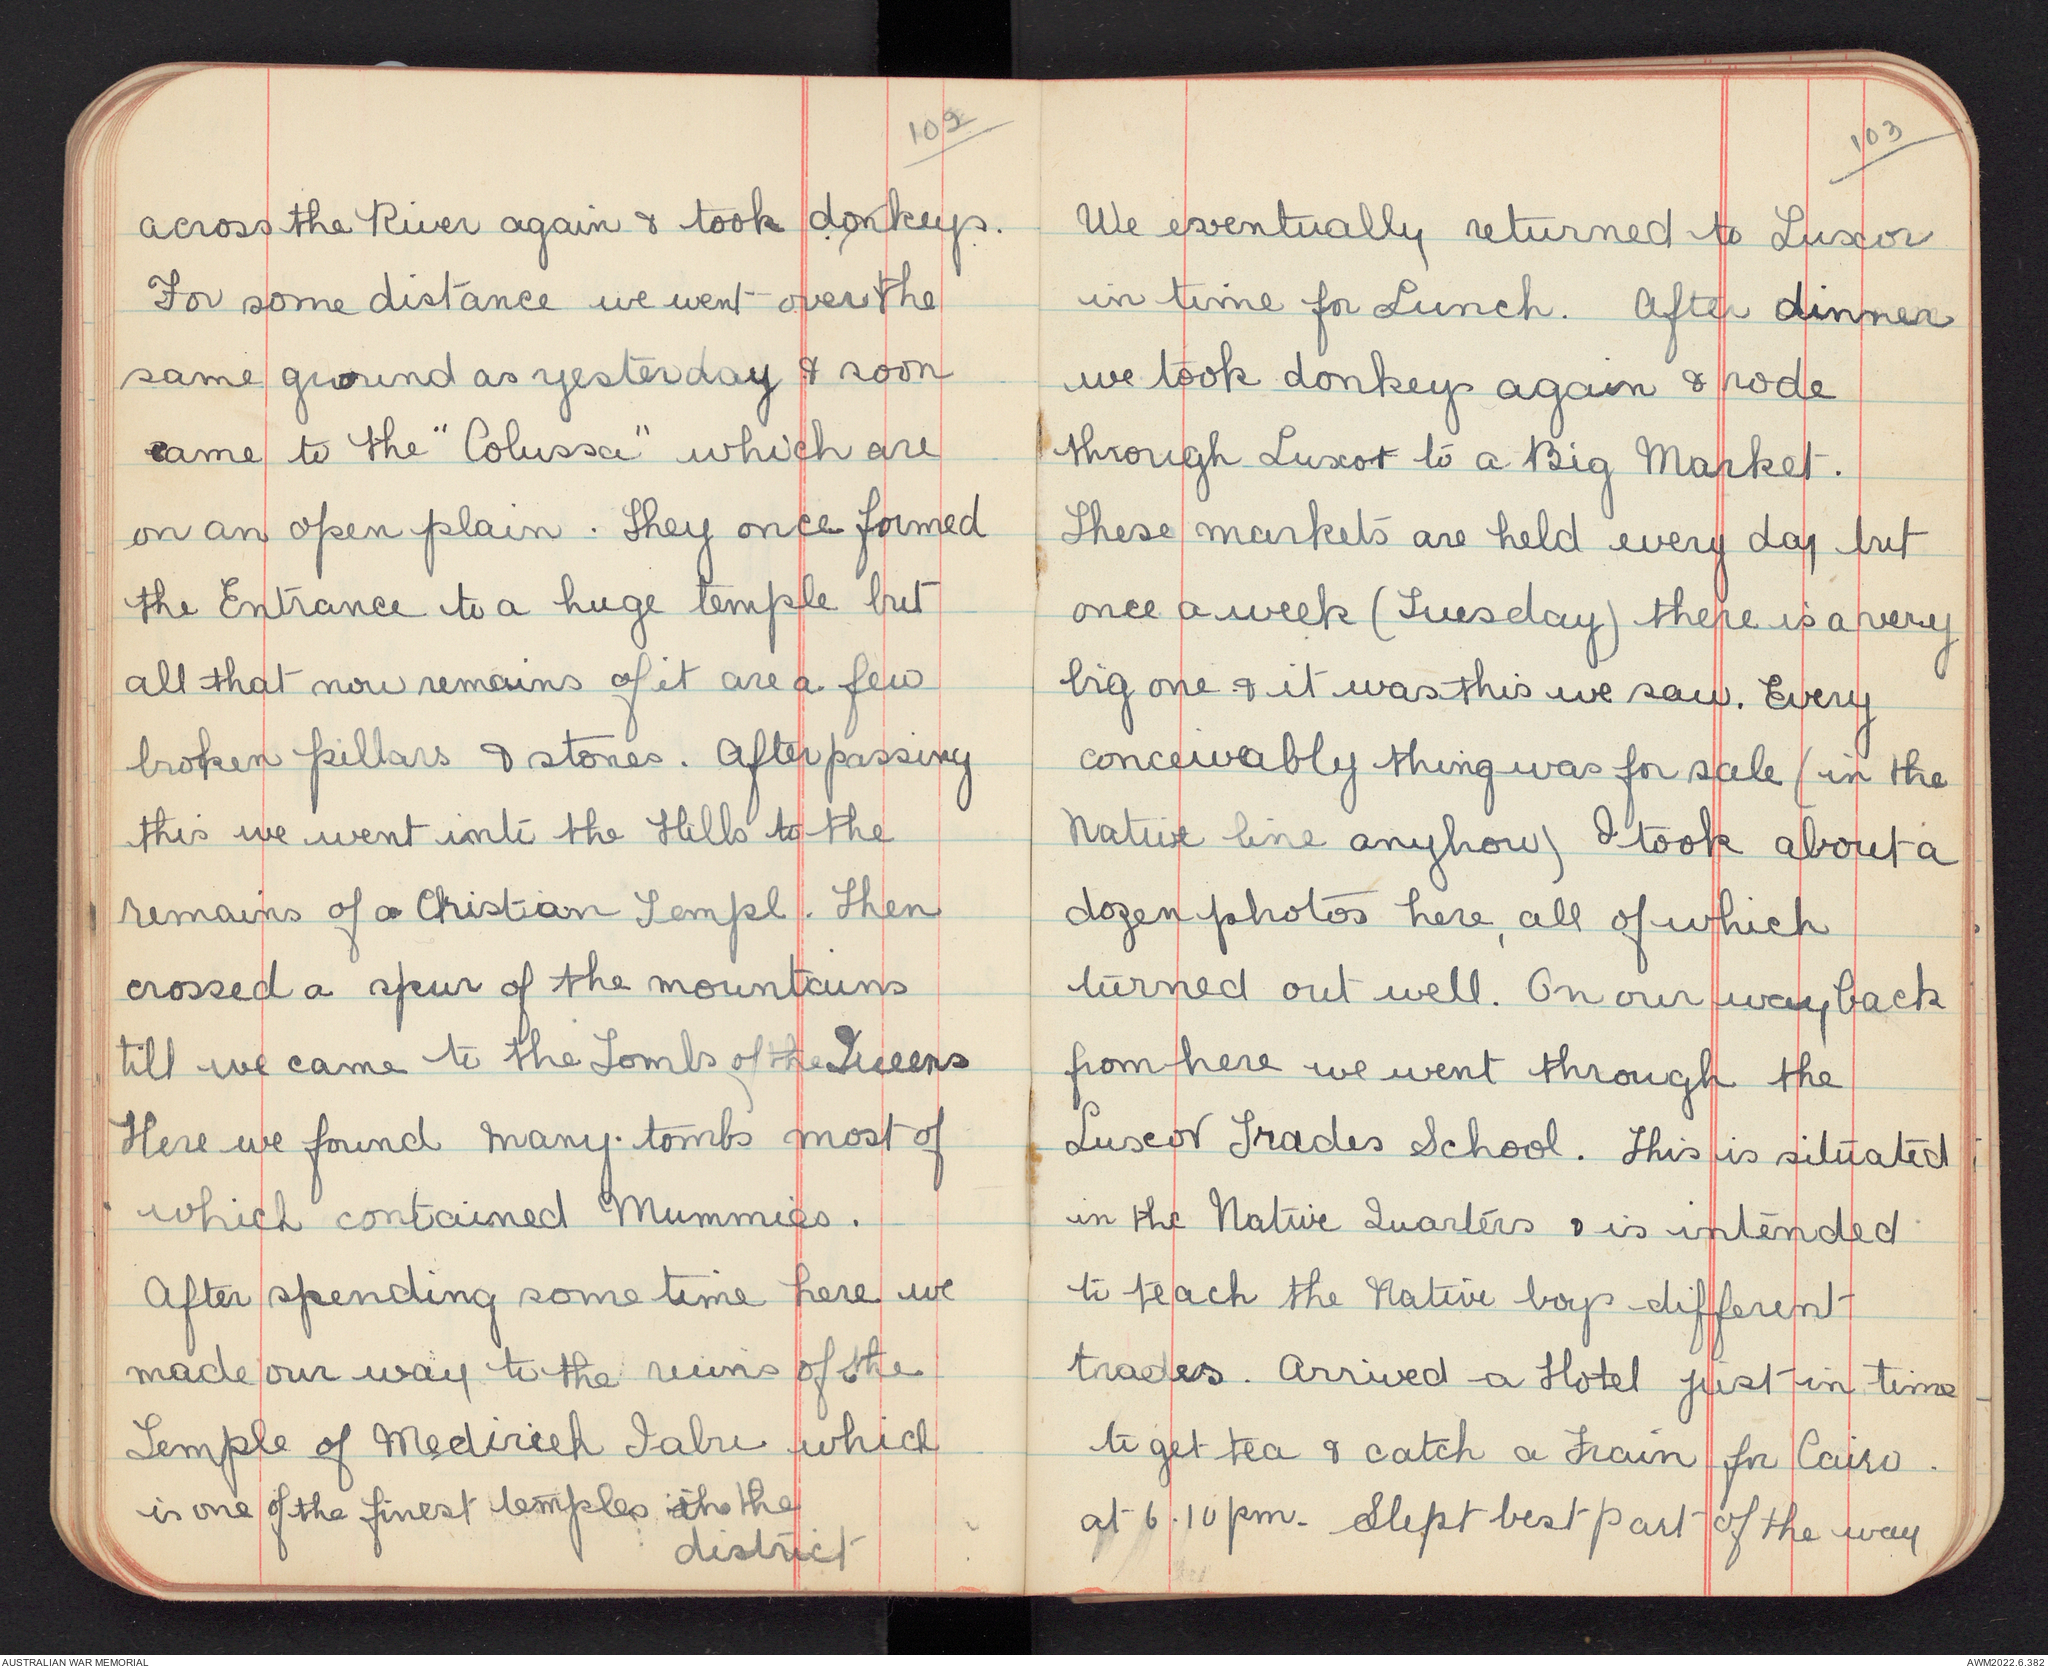 102
across the River again & took donkeys.
For some distance we went over the
same ground as yesterday & soon
came to the "Colussa" which are
on an open plain. They once formed
the Entrance to a huge temple but
all that now remains of it are a few
broken pillars & stones. After passing
this we went into the Hills to the
remains of a Christian Templ. Then
crossed a spur of the mountains
till we came to the Tombs of the Queens
Here we found many tombs most of
which contained Mummies.
After spending some time here we
made our way to the ruins of the
Temple of Medirieh Iabu which
is one of the finest temples in the
district
103
We eventually returned to Luxor
in time for Lunch. After dinner
we took donkeys again & rode
through Luxor to a Big Market.
These markets are held every day but
once a week (Tuesday) there is a very
big one & it was this we saw. Every
conceivably thing was for sale (in the
Native line anyhow) I took about a
dozen photos here, all of which
turned out well. On our way back
from here we went through the
Luxor Trades School. This is situated
in the Native Quarters & is intended
to teach the Native boys different
trades. Arrived a Hotel just in time
to get tea & catch a Train for Cairo.
at 6.10 pm. Slept best part of the way
AUSTRALIAN WAR MEMORIAL
AWM2022.6.382